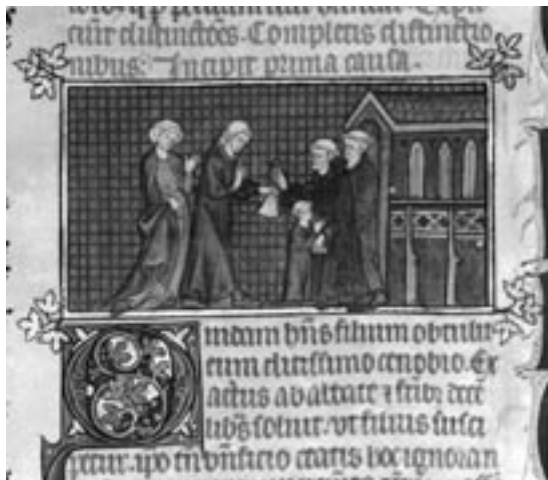 ciūt distinctōes. Completis distinctio
nibus: Incipit prima causa.
Quidam hn̄s filium obtulit
eum ditissimo cenobio. Ex
actus ab abbate ⁊ frībꝫ decē
libꝫ soluit. vt filius susci
petur. ipo tn̄ bn̄ficio etatis hoc ignoran